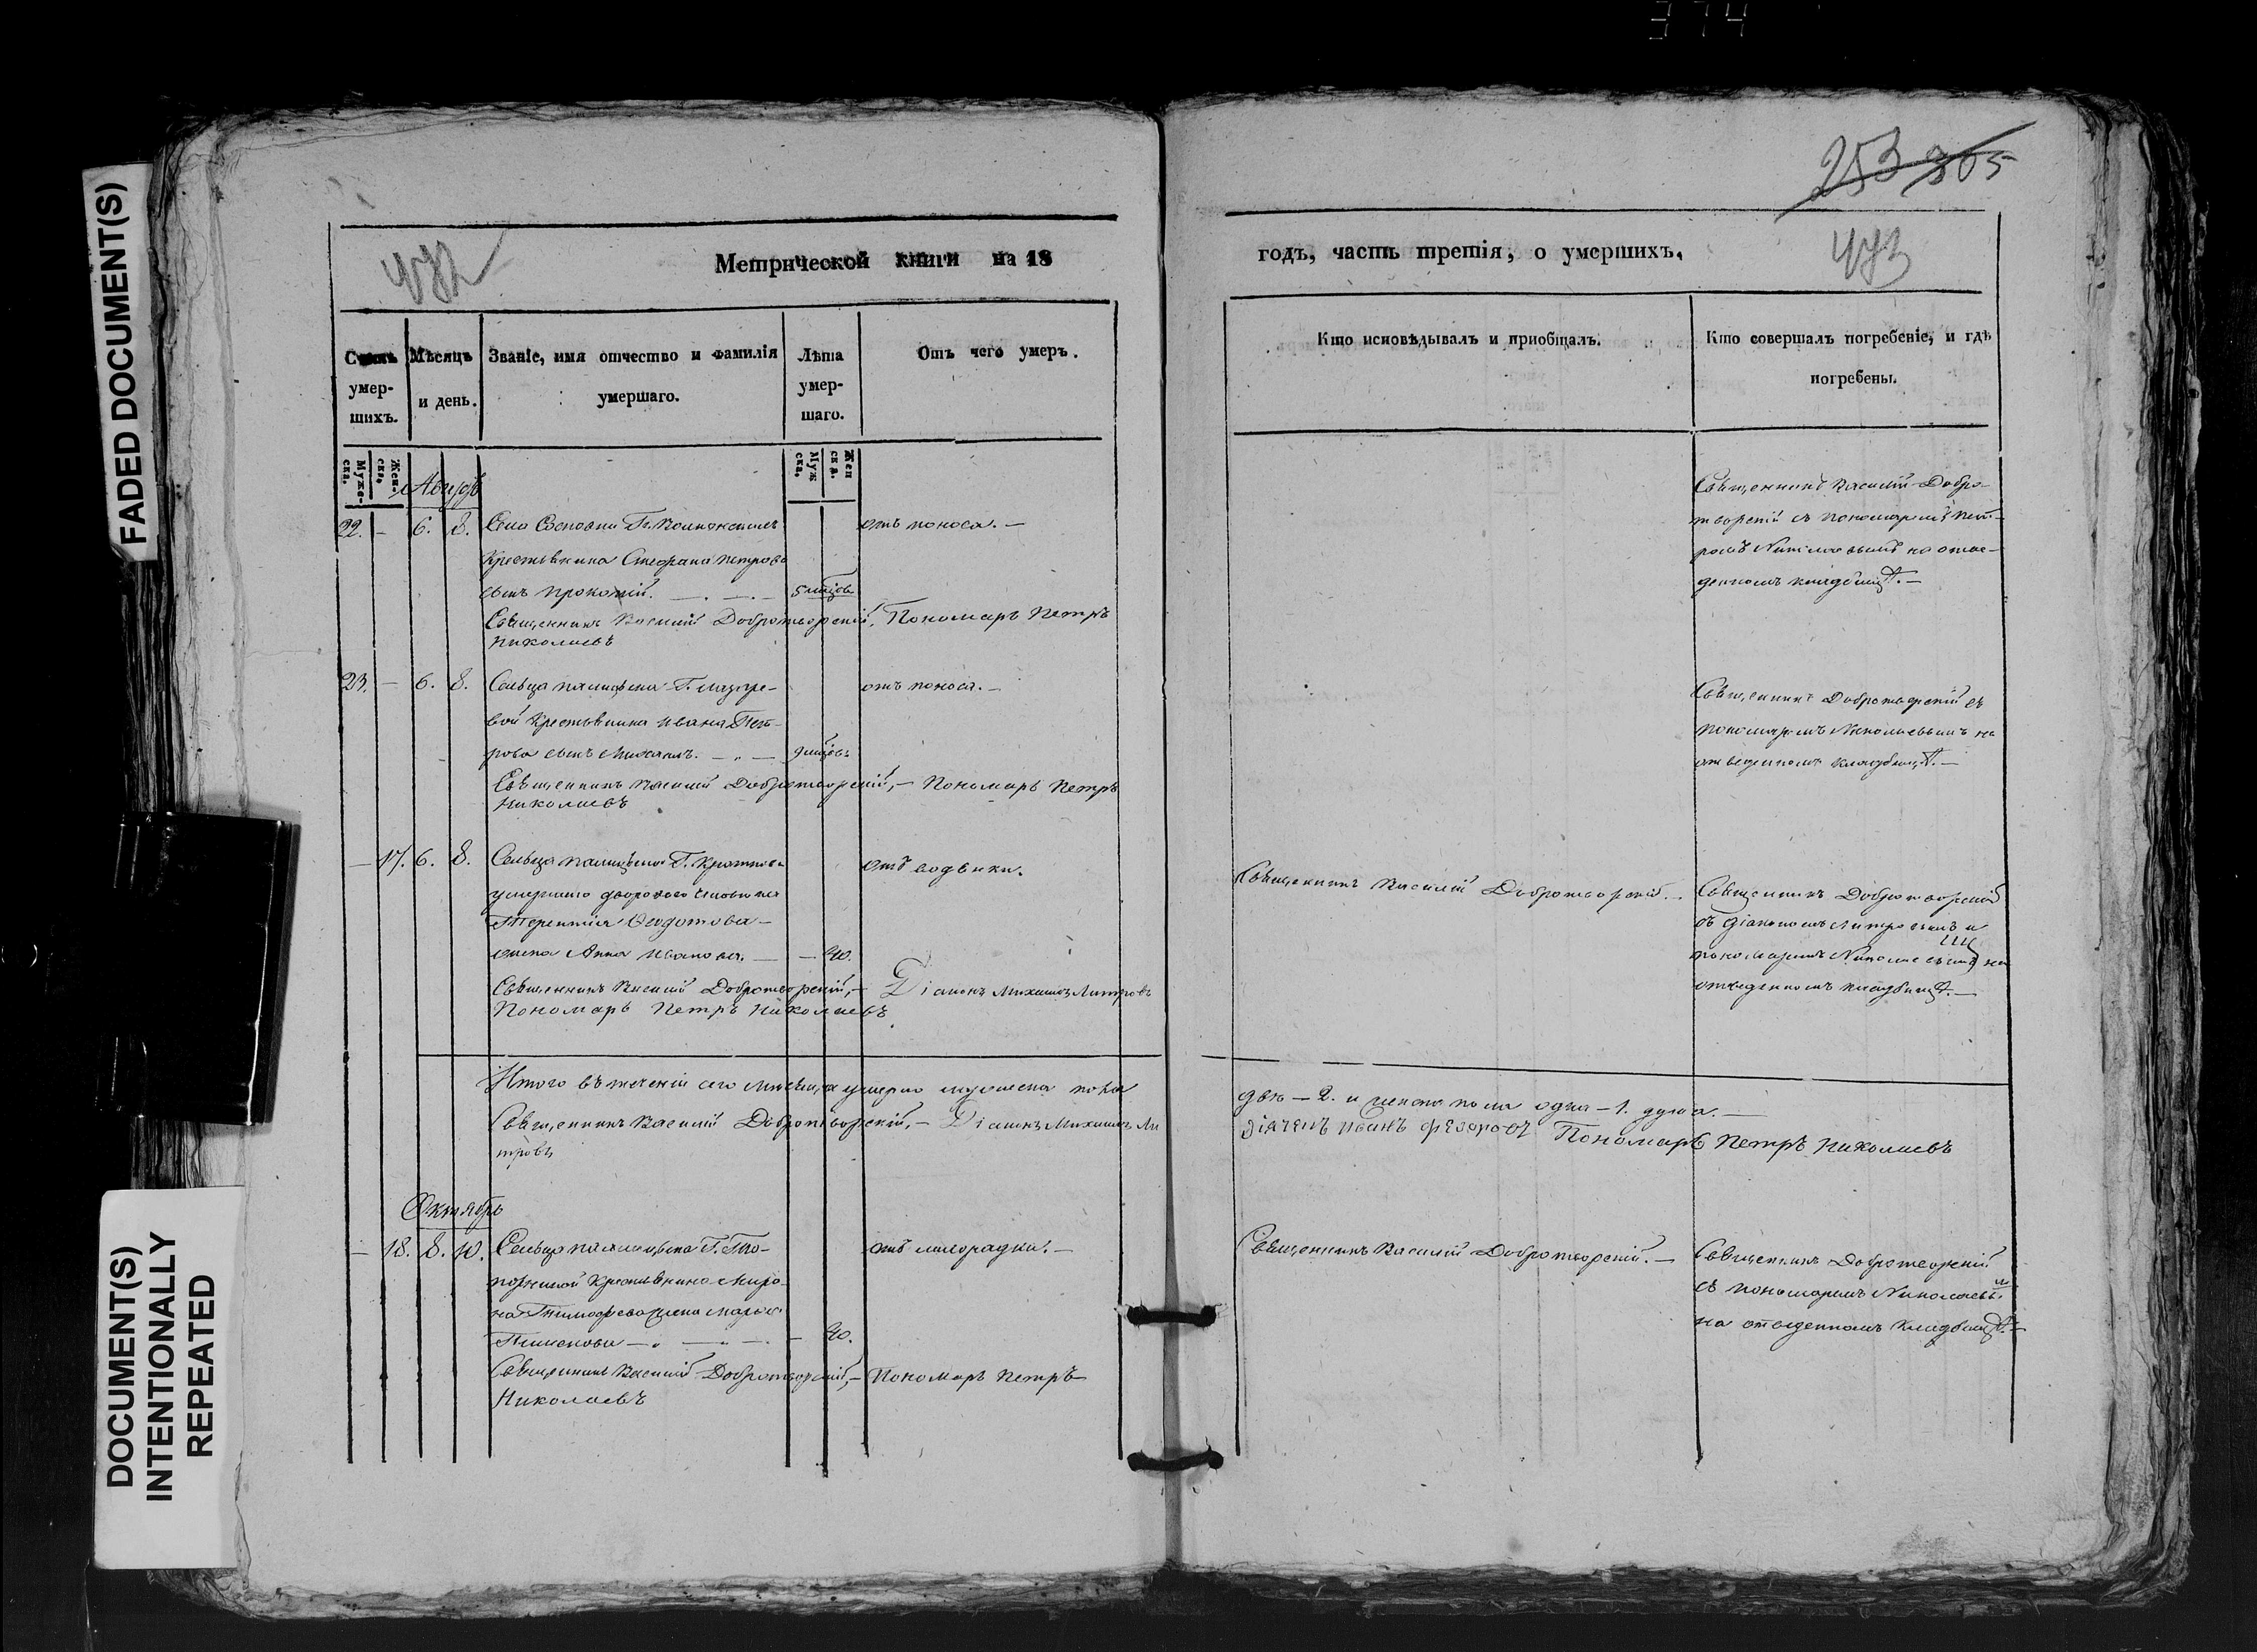 374
FADED DOCUMENT(S)
DOCUMENT(S)
INTENTIONALLY
REPEATED
253 305
Метрической книги на 18
годъ, часть третія, о умершихъ.
Счетъ умер-шихъ.
Мѣсяцъ и день.
Званіе, имя отчество и фамилія умершаго.
Лѣта умер-шаго.
Отъ чего умеръ.
Кто исповѣдывалъ и пріобщалъ.
Кто совершалъ погребеніе, и гдѣ погребены.
Муже-ска. Жен-ска.
Муж ска. Жен ска.
22. — 6. 8. Села
крестьянина Стефана Петрова
сынъ Прокопій. — . — . — 5 мѣсяцовъ
отъ поноса. —
Священникъ Василій Добротворскій, Пономарь Петръ
Николаевъ
Священникъ Василій Добро-
творскій съ пономаремъ Пет-
ромъ Николаевымъ на отве-
денномъ кладбищѣ. —
23. — 6. 8. Сельца Г.
вой крестьянина Ивана Пет-
рова сынъ Михаилъ. — . — 9 мѣсяцовъ
отъ поноса. —
Священникъ Василій Добротворскій, — Пономарь Петръ
Николаевъ
Священникъ Добротворскій съ
пономаремъ Николаевымъ на
отведенномъ кладбищѣ. —
— 17. 6. 8. Сельца Г.
умершаго двороваго человѣка
Терентія Ѳедотова
жена Анна Иванова. — — 40.
отъ водянки.
Священникъ Василій Добротворскій, — Діаконъ Михаилъ Митровъ
Пономарь Петръ Николаевъ
Священникъ Василій Добротворскій. —
Священникъ Добротворскій
съ діакономъ Митровымъ и
пономаремъ Николаевымъ на
отведенномъ кладбищѣ. —
Итого въ теченіи сего мѣсяца умерло мужеска пола
двѣ — 2. и женска пола одна — 1. душа. —
Священникъ Василій Добротворскій, — Діаконъ Михаилъ Ми
тровъ
дiячекъ Иванъ Федоровъ Пономарь Петръ Николаевъ
Октябрь
— 18. 8. 10. Сельца Г.
крестьянина Миро-
на Тимофеева жена Марья
— . — . — . — 40.
отъ лихорадки. —
Священникъ Василій Добротворскій, — Пономарь Петръ
Николаевъ
Священникъ Василій Добротворскій. —
Священникъ Добротворскій
съ пономаремъ Николаевым
на отведенномъ кладбищѣ. —